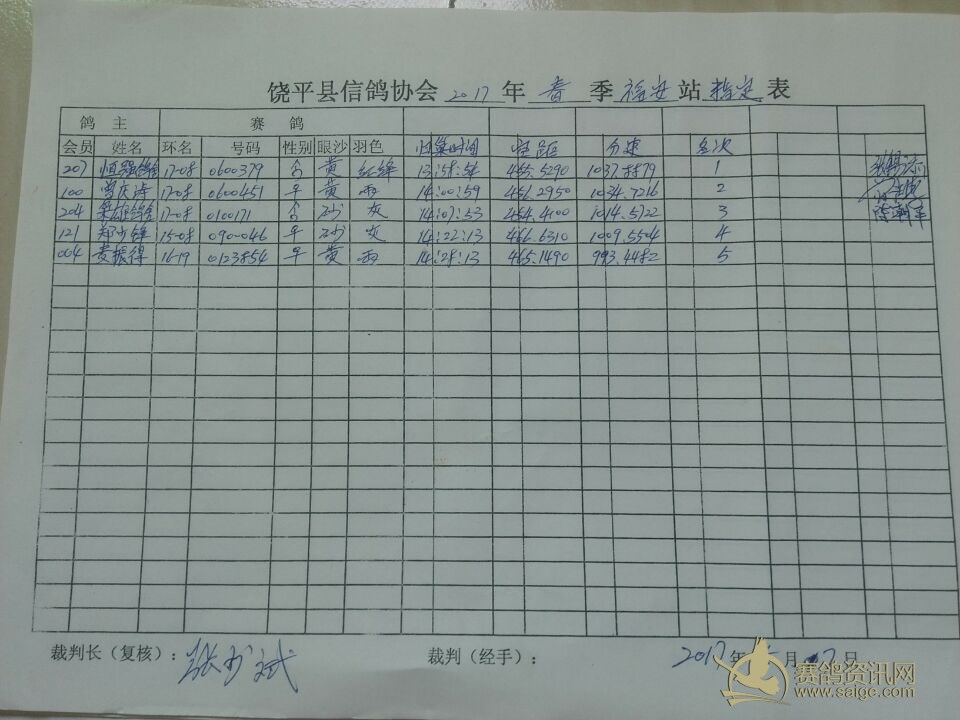 饶平县信鸽协会 2017 年 春 季 福安 站 指定 表
鸽 主 赛 鸽
会员 姓名 环名 号码 性别 眼沙 羽色 归巢时间 空距 分速 名次
207 恒强鸽舍 17-08 0600379 黄 红绛 13:58:54 455.5290 1037.8879 1
100 17-08 0600451 平 黄 雨 14:00:59 456.2950 1034.7216 2
204 荣雄鸽舍 17-08 0100171 砂 灰 14:07:53 454.4100 1014.5722 3
121 郑少锋 15-08 090046 平 砂 灰 14:22:13 466.6310 1009.5504 4
004 黄振得 16-19 0123854 平 黄 雨 14:28:13 465.1490 993.4482 5
裁判长（复核）： 张少斌 裁判（经手）： 2017 年 月 7 日
赛鸽资讯网
www.saigc.com